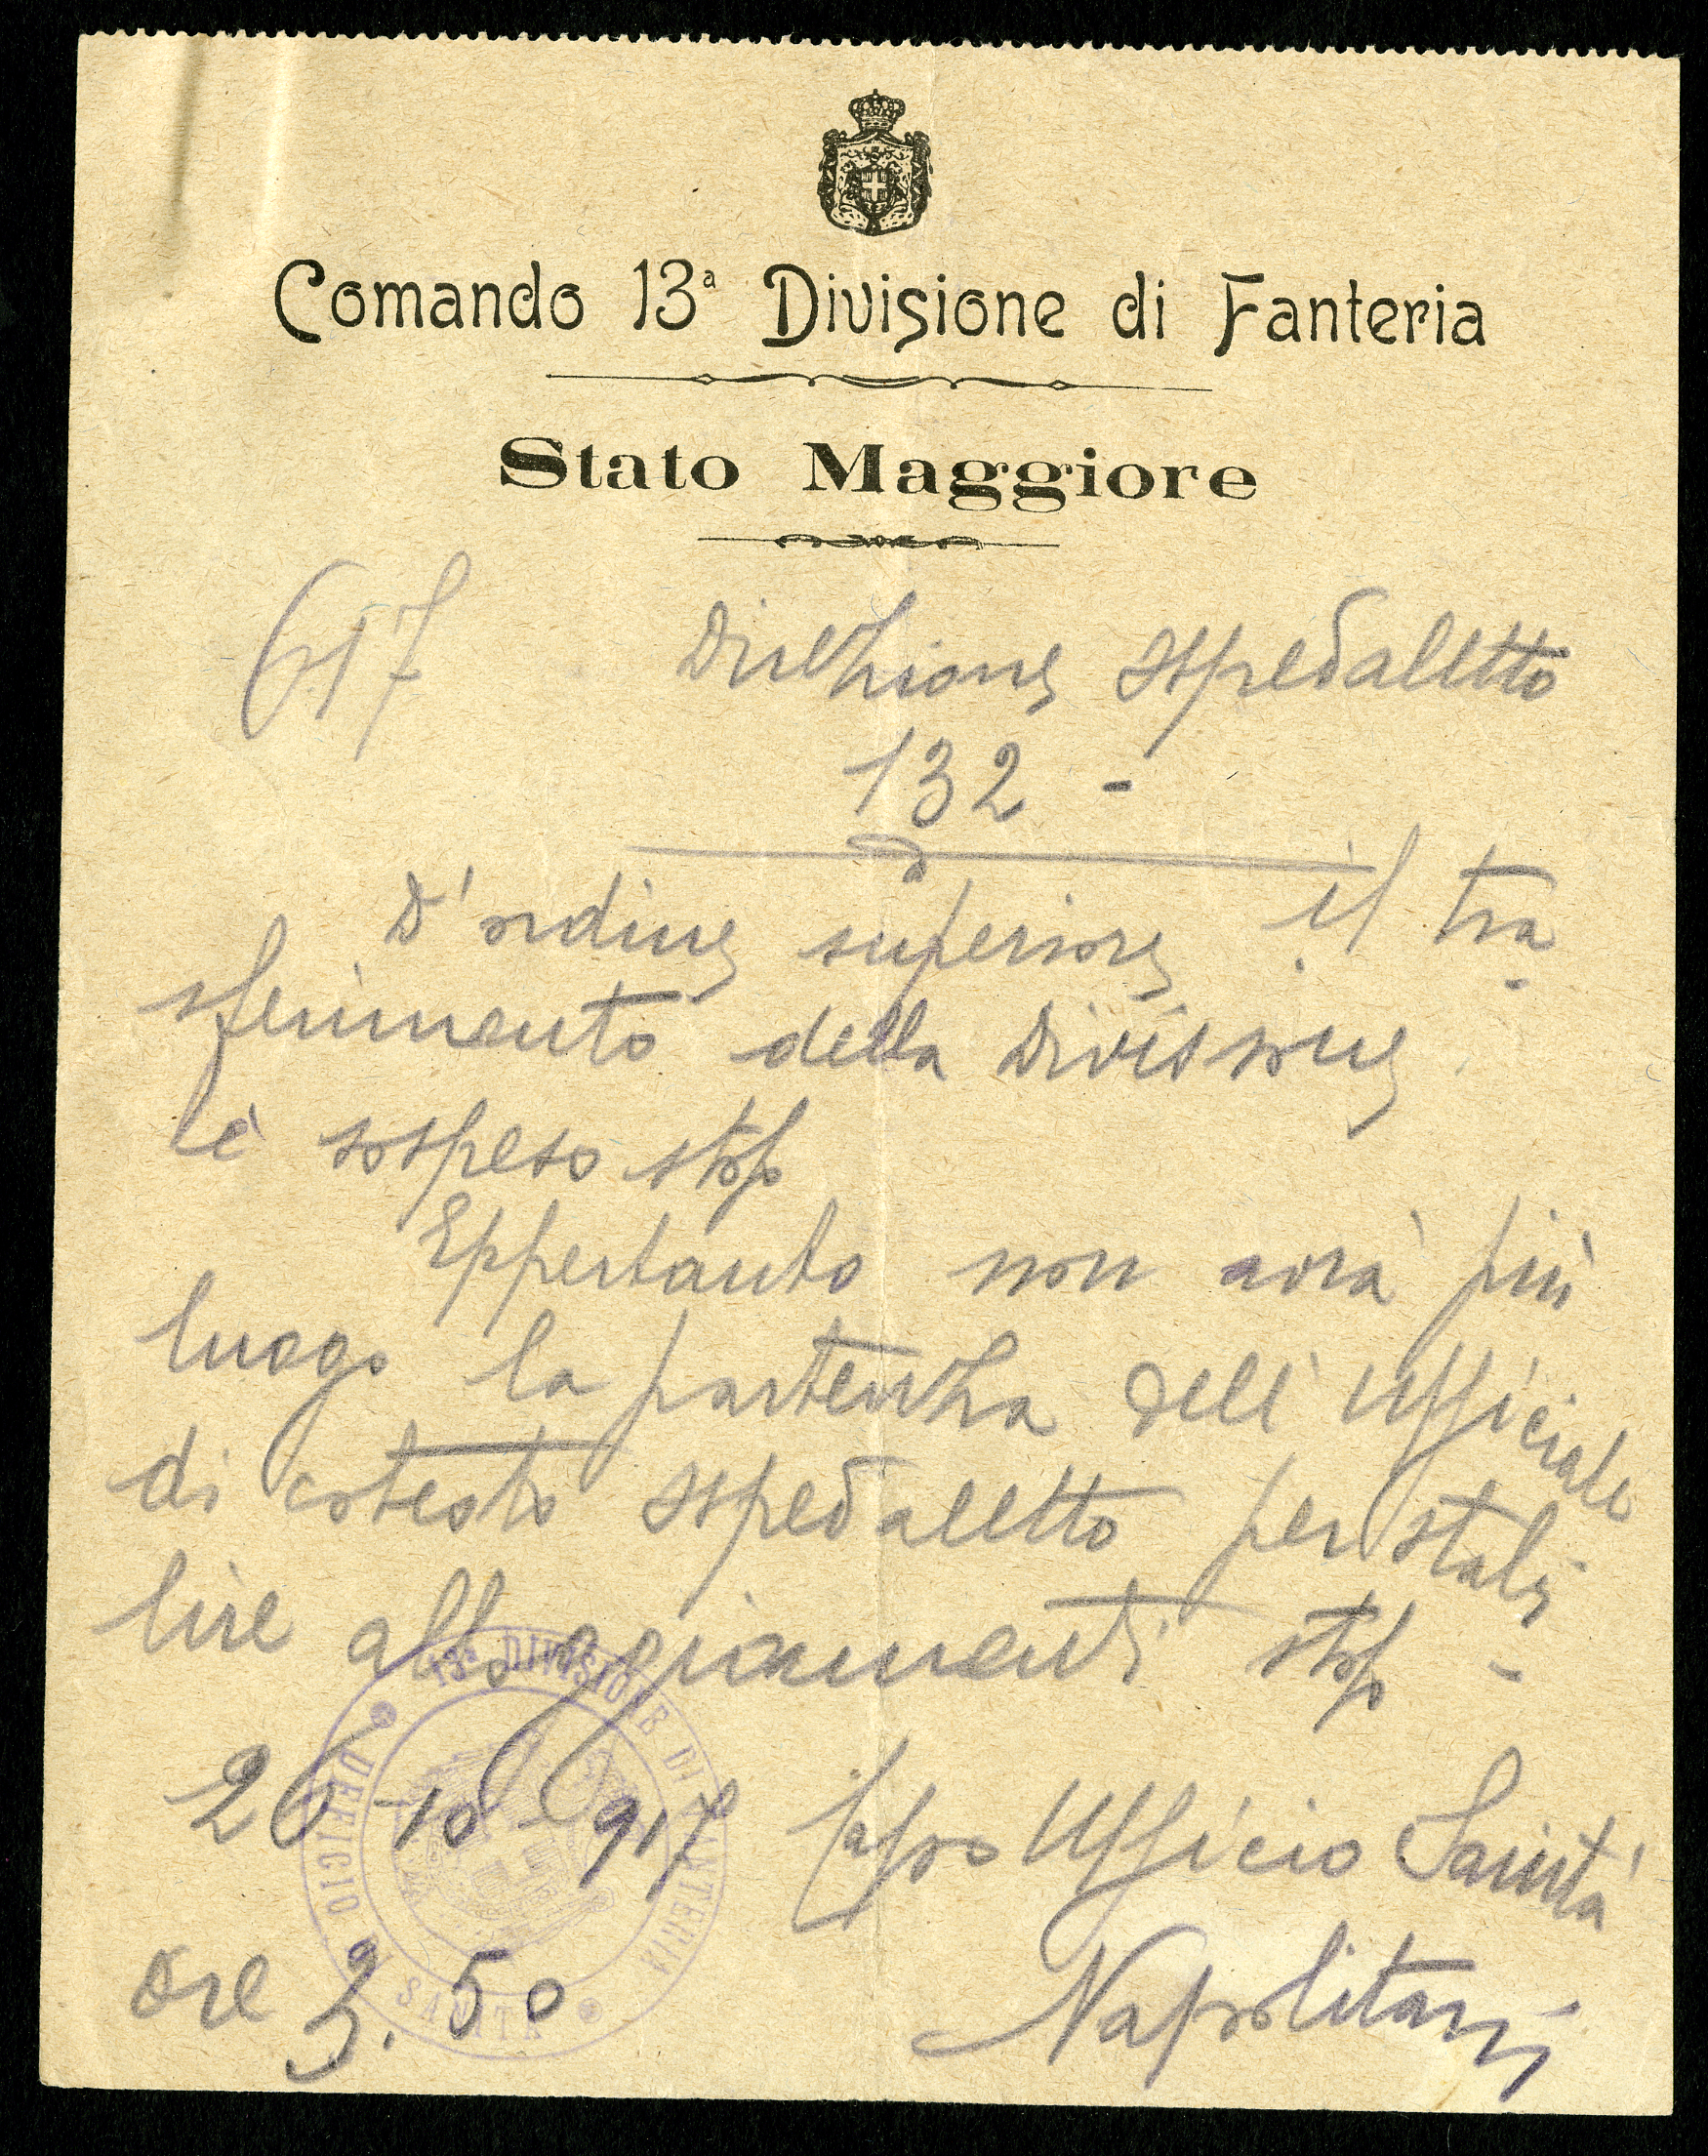 Comando 13ª Divisione di Fanteria
Stato Maggiore
617
Direzione ospedaletto
132 -
D'ordine superiore il tra
sferimento della Divisione
è sospeso stop
Eppertanto non avrà più
luogo la partenza dell'Ufficiale
di cotesto ospedaletto per stabi
lire alloggiamenti stop -
26-10-917 Capo Ufficio Sanità
ore 3.50 Napolitani
13ª DIVISIONE DI FANTERIA
UFFICIO SANITÀ